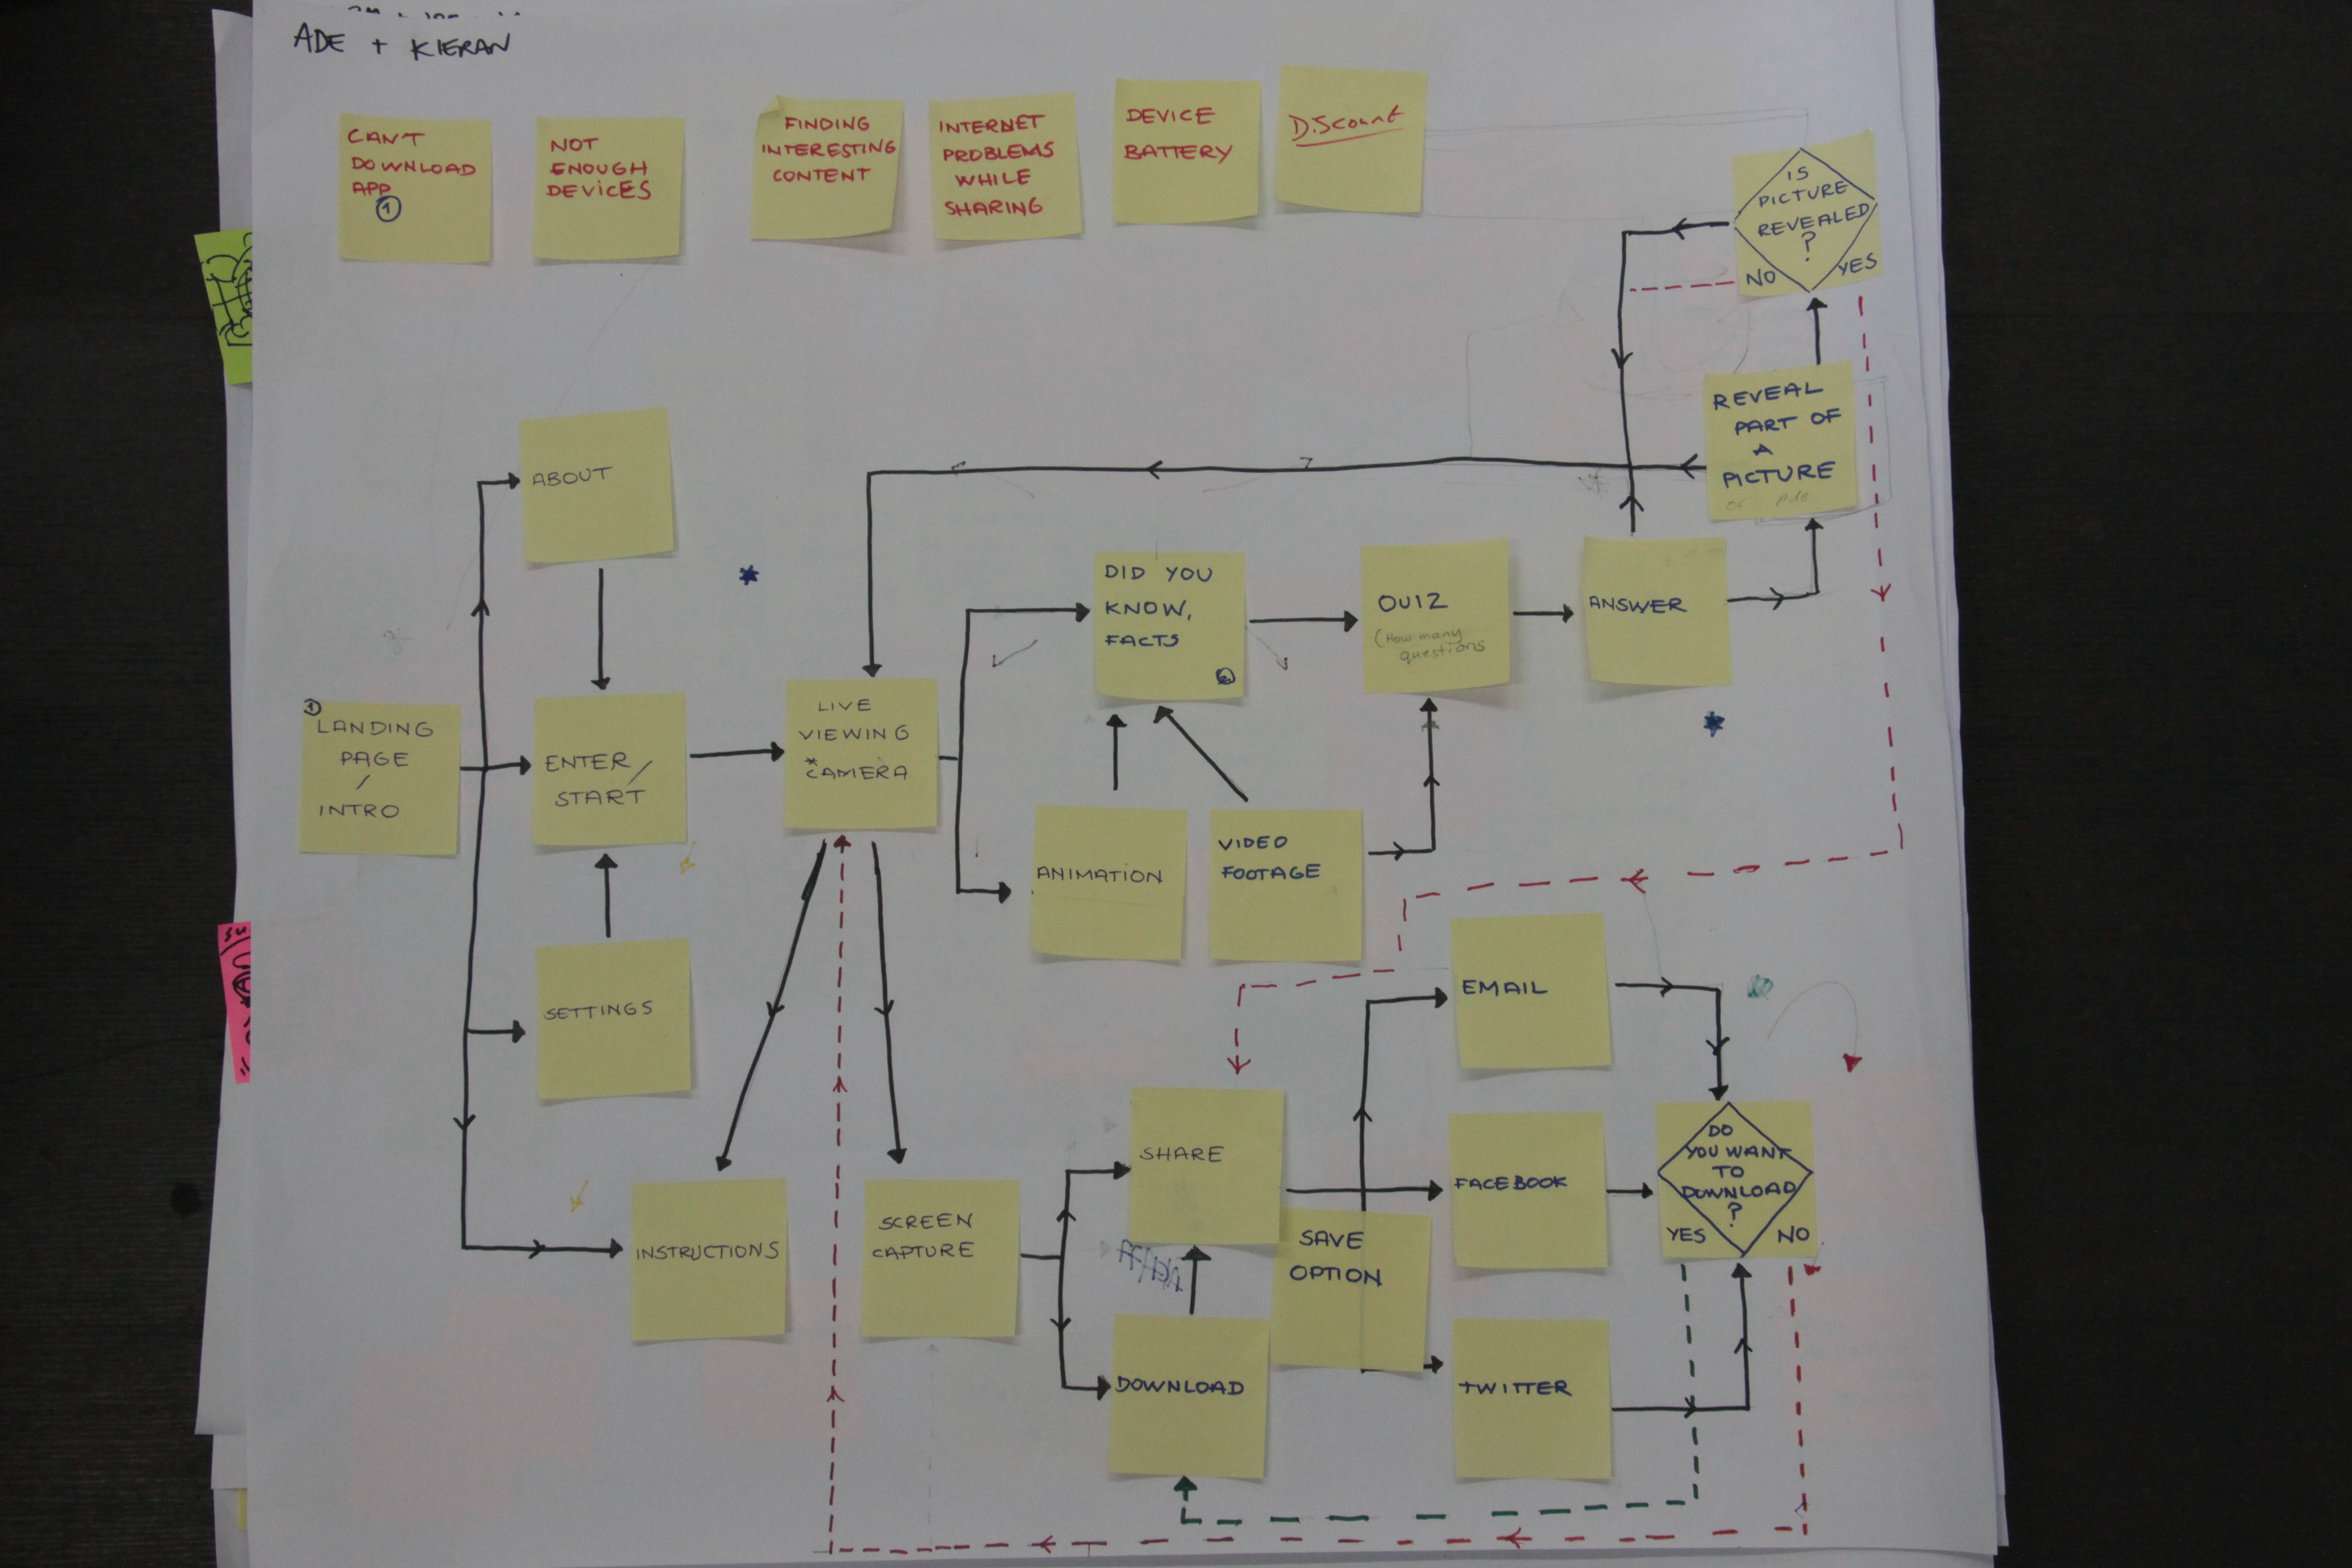 ADE + KIERAN
CAN'T
DOWNLOAD
APP
1
NOT
ENOUGH
DEVICES
FINDING
INTERESTING
CONTENT
INTERNET
PROBLEMS
WHILE
SHARING
DEVICE
BATTERY
DIScount
IS
PICTURE
REVEALED
?
NO
YES
REVEAL
PART OF
A
PICTURE
OF Ade
ABOUT
DID YOU
KNOW,
FACTS
QUIZ
(How many
questions
ANSWER
1
LANDING
PAGE
/
INTRO
ENTER/
START
LIVE
VIEWING
*CAMERA
ANIMATION
VIDEO
FOOTAGE
SETTINGS
EMAIL
SHARE
FACEBOOK
DO
YOU WANT
TO
DOWNLOAD
?
YES
NO
INSTRUCTIONS
SCREEN
CAPTURE
SAVE
OPTION
DOWNLOAD
TWITTER